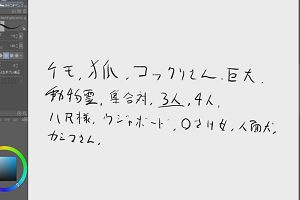 ケモ,狐,コックリさん.巨大.
動物霊,集合対,3人,4人,
八尺様,ウジャボード,口さけ女,人面犬,
カシマさん,